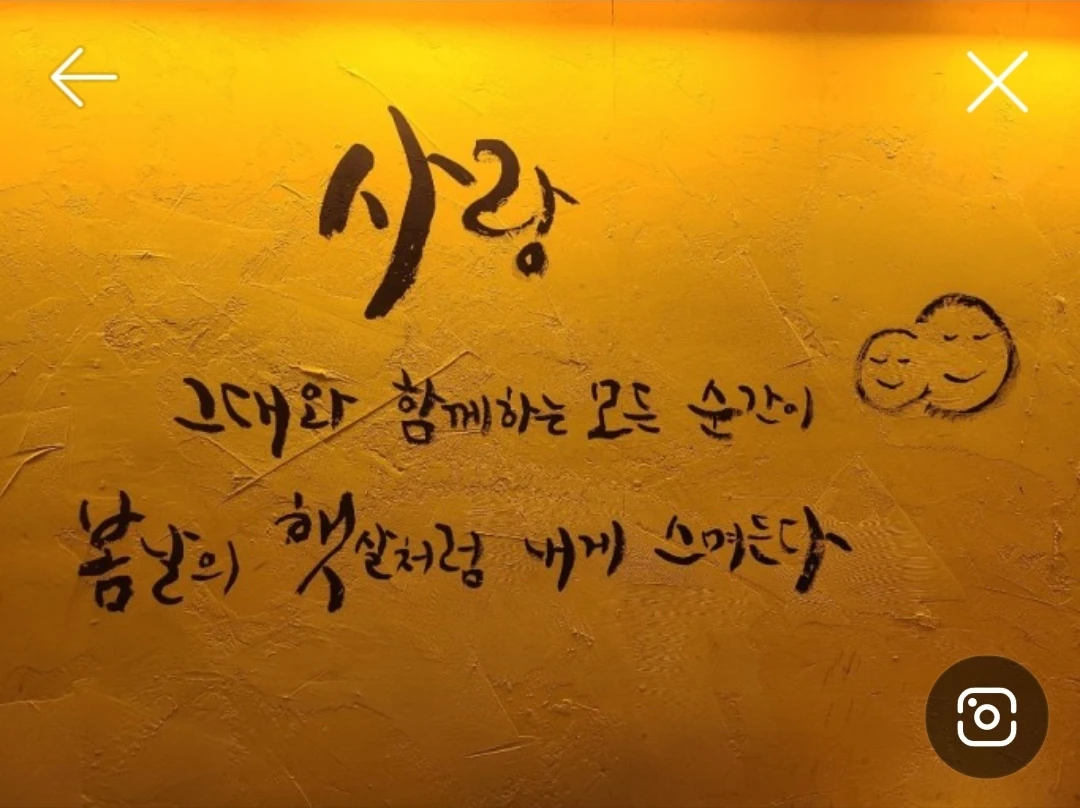 사랑
그대와 함께하는 모든 순간이
봄날의 햇살처럼 내게 스며든다